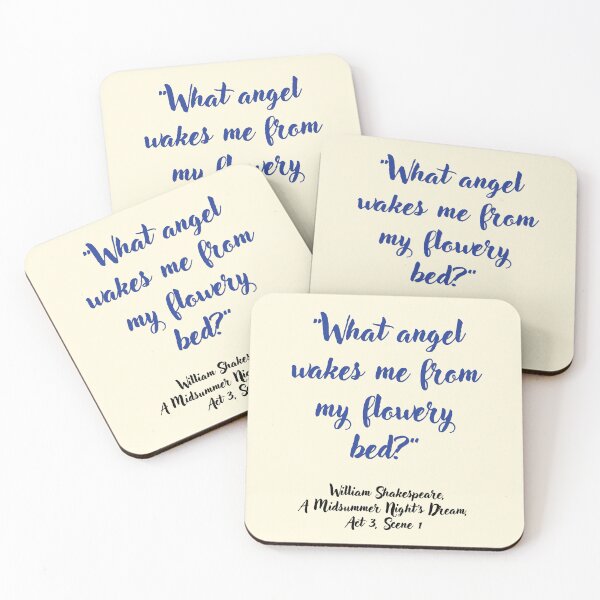 "What angel
wakes me from
my flowery
"What angel
wakes me from
my flowery
bed?"
"What angel
wakes me from
my flowery
bed?"
William
A Midsummer
Act 3,
"What angel
wakes me from
my flowery
bed?"
William Shakespeare,
A Midsummer Night's Dream,
Act 3, Scene 1